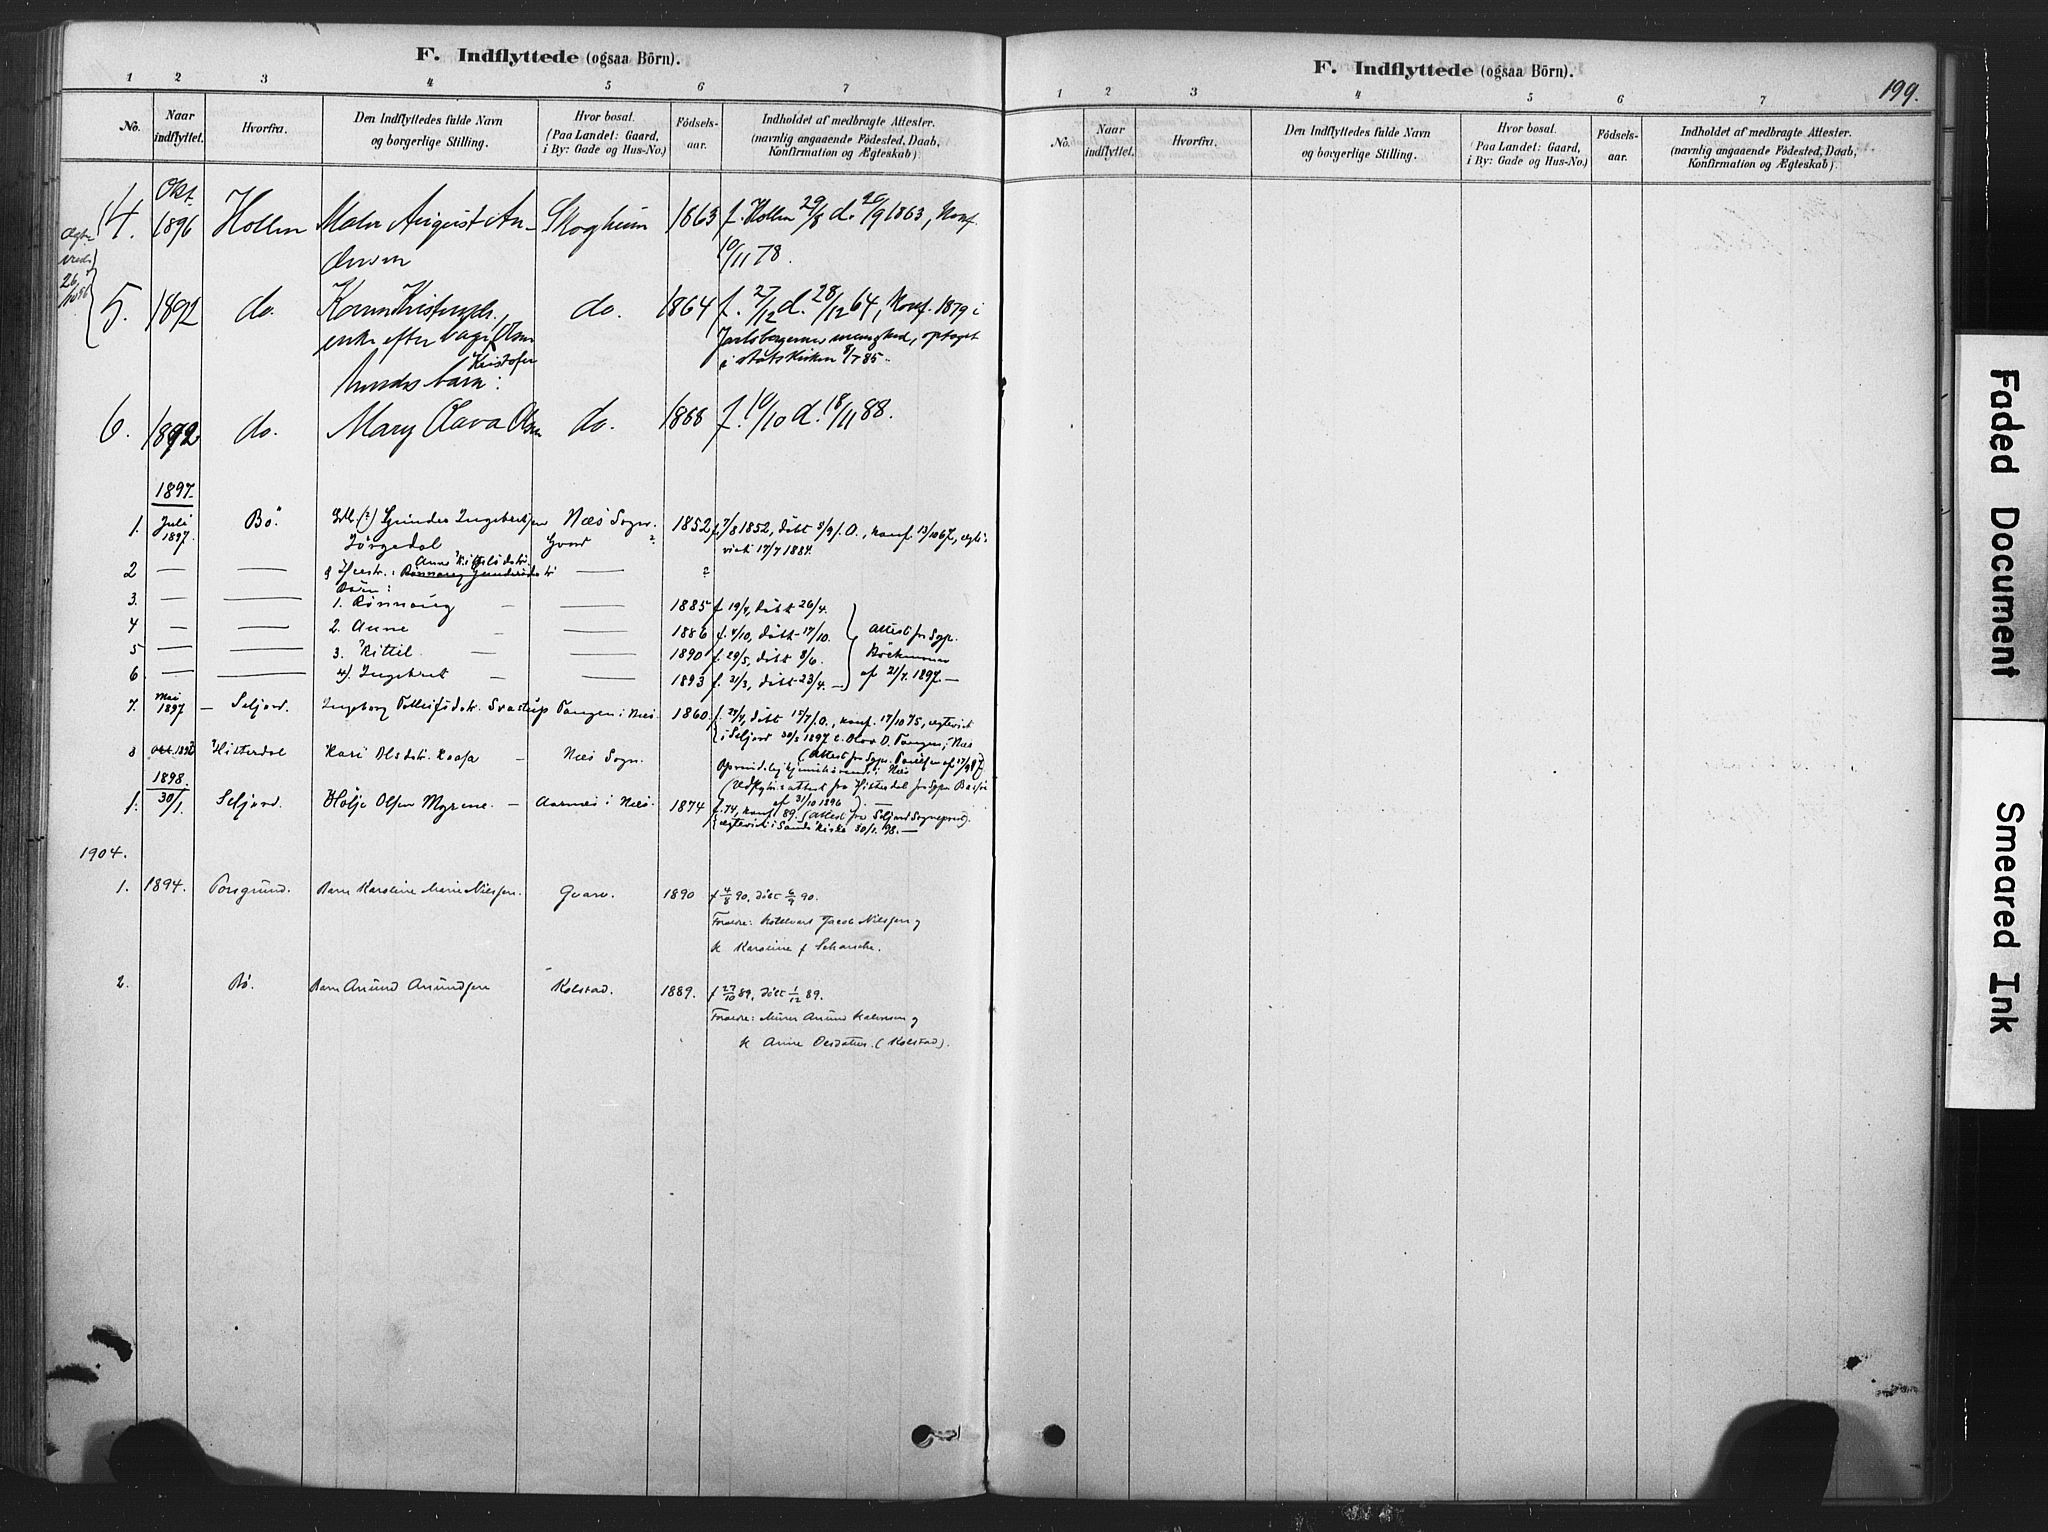 F. Indflyttede (ogsaa Börn).
1 2 3 4 5 6 7
No. Naar indflyttet. Hvorfra. Den Indflyttedes fulde Navn og borgerlige Stilling. Hvor bosat. (Paa Landet: Gaard, i By: Gade og Hus-No.) Födsels-aar. Indholdet af medbragte Attester. (navnlig angaaende Födested, Daab, Konfirmation og Ægteskab)
4. Okt. 1896 Hollen Maler August An- Skogheim 1863 f. Hollen 29/8 d. 20/9 1863, Konf.
dersen 10/11 78.
5. 1892 do. Karen Kristensdr. do. 1864 f. 27/12 d. 28/12 64, Konf. 1879 i
enke efter Olsen menighed, optaget
Kristofer i statskirken 8/7 85.
hendes barn:
6. 1892 do. Mary Olava Olsen do. 1888 f. 10/10 d. 18/11 88.
1897.
1. Juli 1897. Bö. Gunder Ingebretsen Næs Sogn. 1852 f. 7/8 1852, döbt 5/9 s. O., konf. 13/10 67, ægte-
Jörgedal ? viet 17/7 1884.
2 — — Anne Kittilsdtr. — ?
Börn:
3. — — 1. Rönnaug — — 1885 f 19/4, döbt 26/4.
4 — — 2. Anne — — 1886 f. 4/10, döbt 17/10. Attest fra Sgpr.
5 — — 3. Kittil — — 1890 f. 29/5, döbt 8/6.
6 — — 4). Ingebret — — 1893 f. 21/3, döbt 23/4. — af 21/7. 1897. —
7. Mai 1897 — Seljord. Ingeborg Tollefsdtr. Svastup Tangen i Næs. 1860. döbt 15/7 s. O., konf. 17/10 75, ægteviet
i Seljord 30/5 1897 Olav O. Tangen, Næs
(Attest fra Sgpr.
8 Okt. 1896 Hitterdal Kari Olsdtr. Kaasa — Næs Sogn. Oprindelig hjemmehörende i Næs
(Udflytn: attest fra Hitterdal fra Sgpr.
af 31/10 1896
1898.
1. 30/1. Seljord. Hölje Olsen Myrene. — Aarnæs i Næs. 1874 f. 74, konf 89. (Attest fra Seljord Sognepræst).
ægteviet i Sande Kirke 30/1. 98. —
1904.
1. 1894. Porsgrund. Barn Karoline Marie Nielsen. Gvarv. 1890 f 4/8 90, döbt 6/9 90.
Foræld: Jacob Nielsen og
K Karoline f
2. Bö. Barn Anund Anundsen Kolstad. 1889. f 23/10 89, döbt 1/12 89.
Foræld: Murer Anund og
K Anne Olsdatter. (Kolstad).
F. Indflyttede (ogsaa Börn).
199.
1 2 3 4 5 6 7
No. Naar indflyttet. Hvorfra. Den Indflyttedes fulde Navn og borgerlige Stilling. Hvor bosat. (Paa Landet: Gaard, i By: Gade og Hus-No.) Födsels-aar. Indholdet af medbragte Attester. (navnlig angaaende Födested, Daab, Konfirmation og Ægteskab)
Faded Document
Smeared Ink